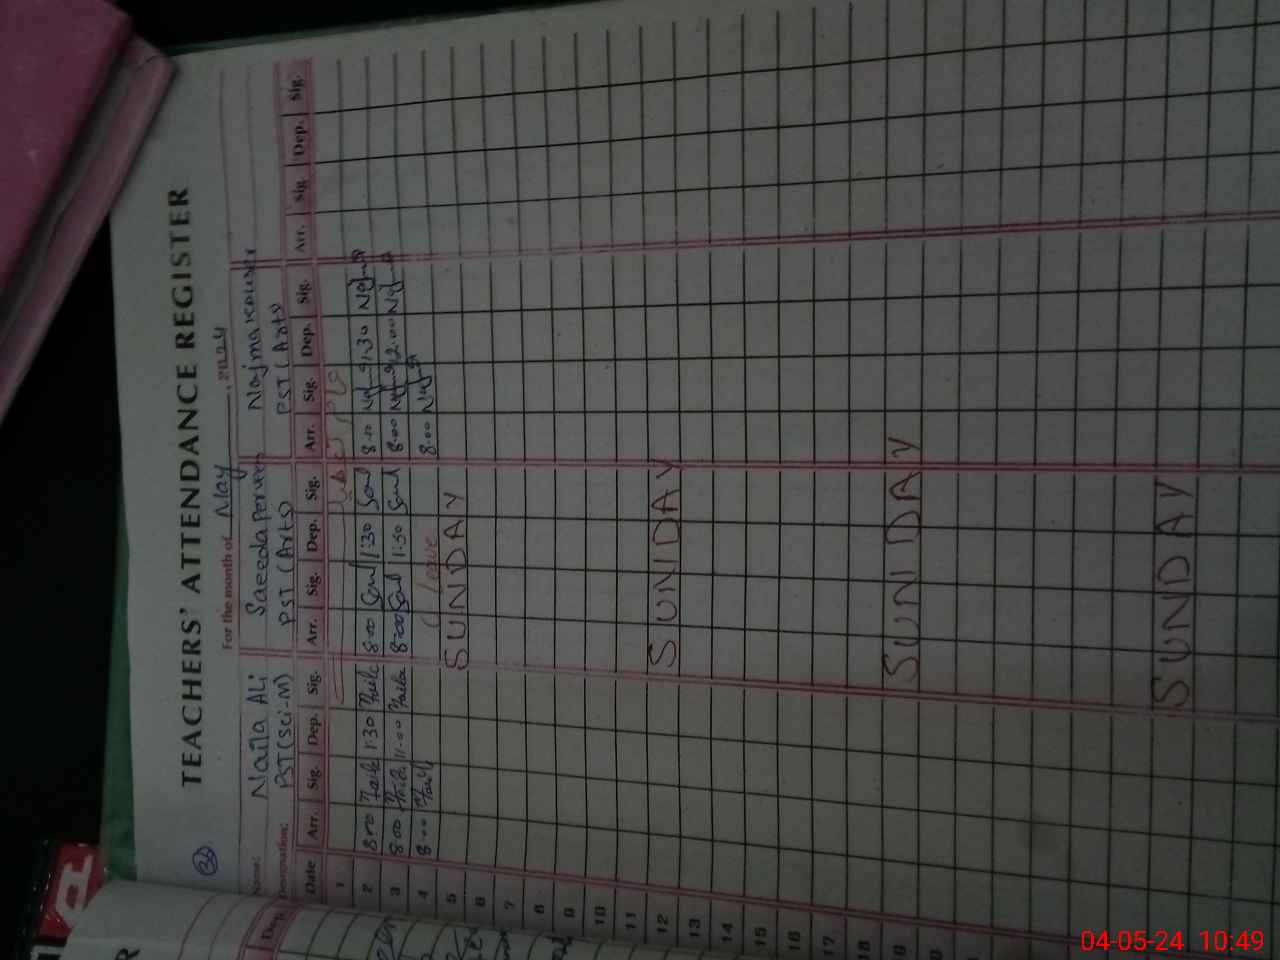 TEACHERS' ATTENDANCE REGISTER
For the month of May, 2024
Name: Naila Ali Saeeda Perveen Najma Kousar
Designation: PST (Sci-M) PST (Arts) PST (Arts)
Date Arr. Sig. Dep. Sig. Arr. Sig. Dep. Sig. Arr. Sig. Dep. Sig. Arr. Sig. Dep. Sig.
1
2 8:00 Naila 1:30 Naila 8:00 1:30 8:00 1:30
3 8:00 Naila 11:00 Naila 8:00 1:30 8:00 12:00
4 8:00 Leave 8:00
5 SUNDAY
6
7
8
9
10
11
12 SUNDAY
13
14
15
16
17
18
19 SUNDAY
SUNDAY
Dep.
R
04-05-24 10:49